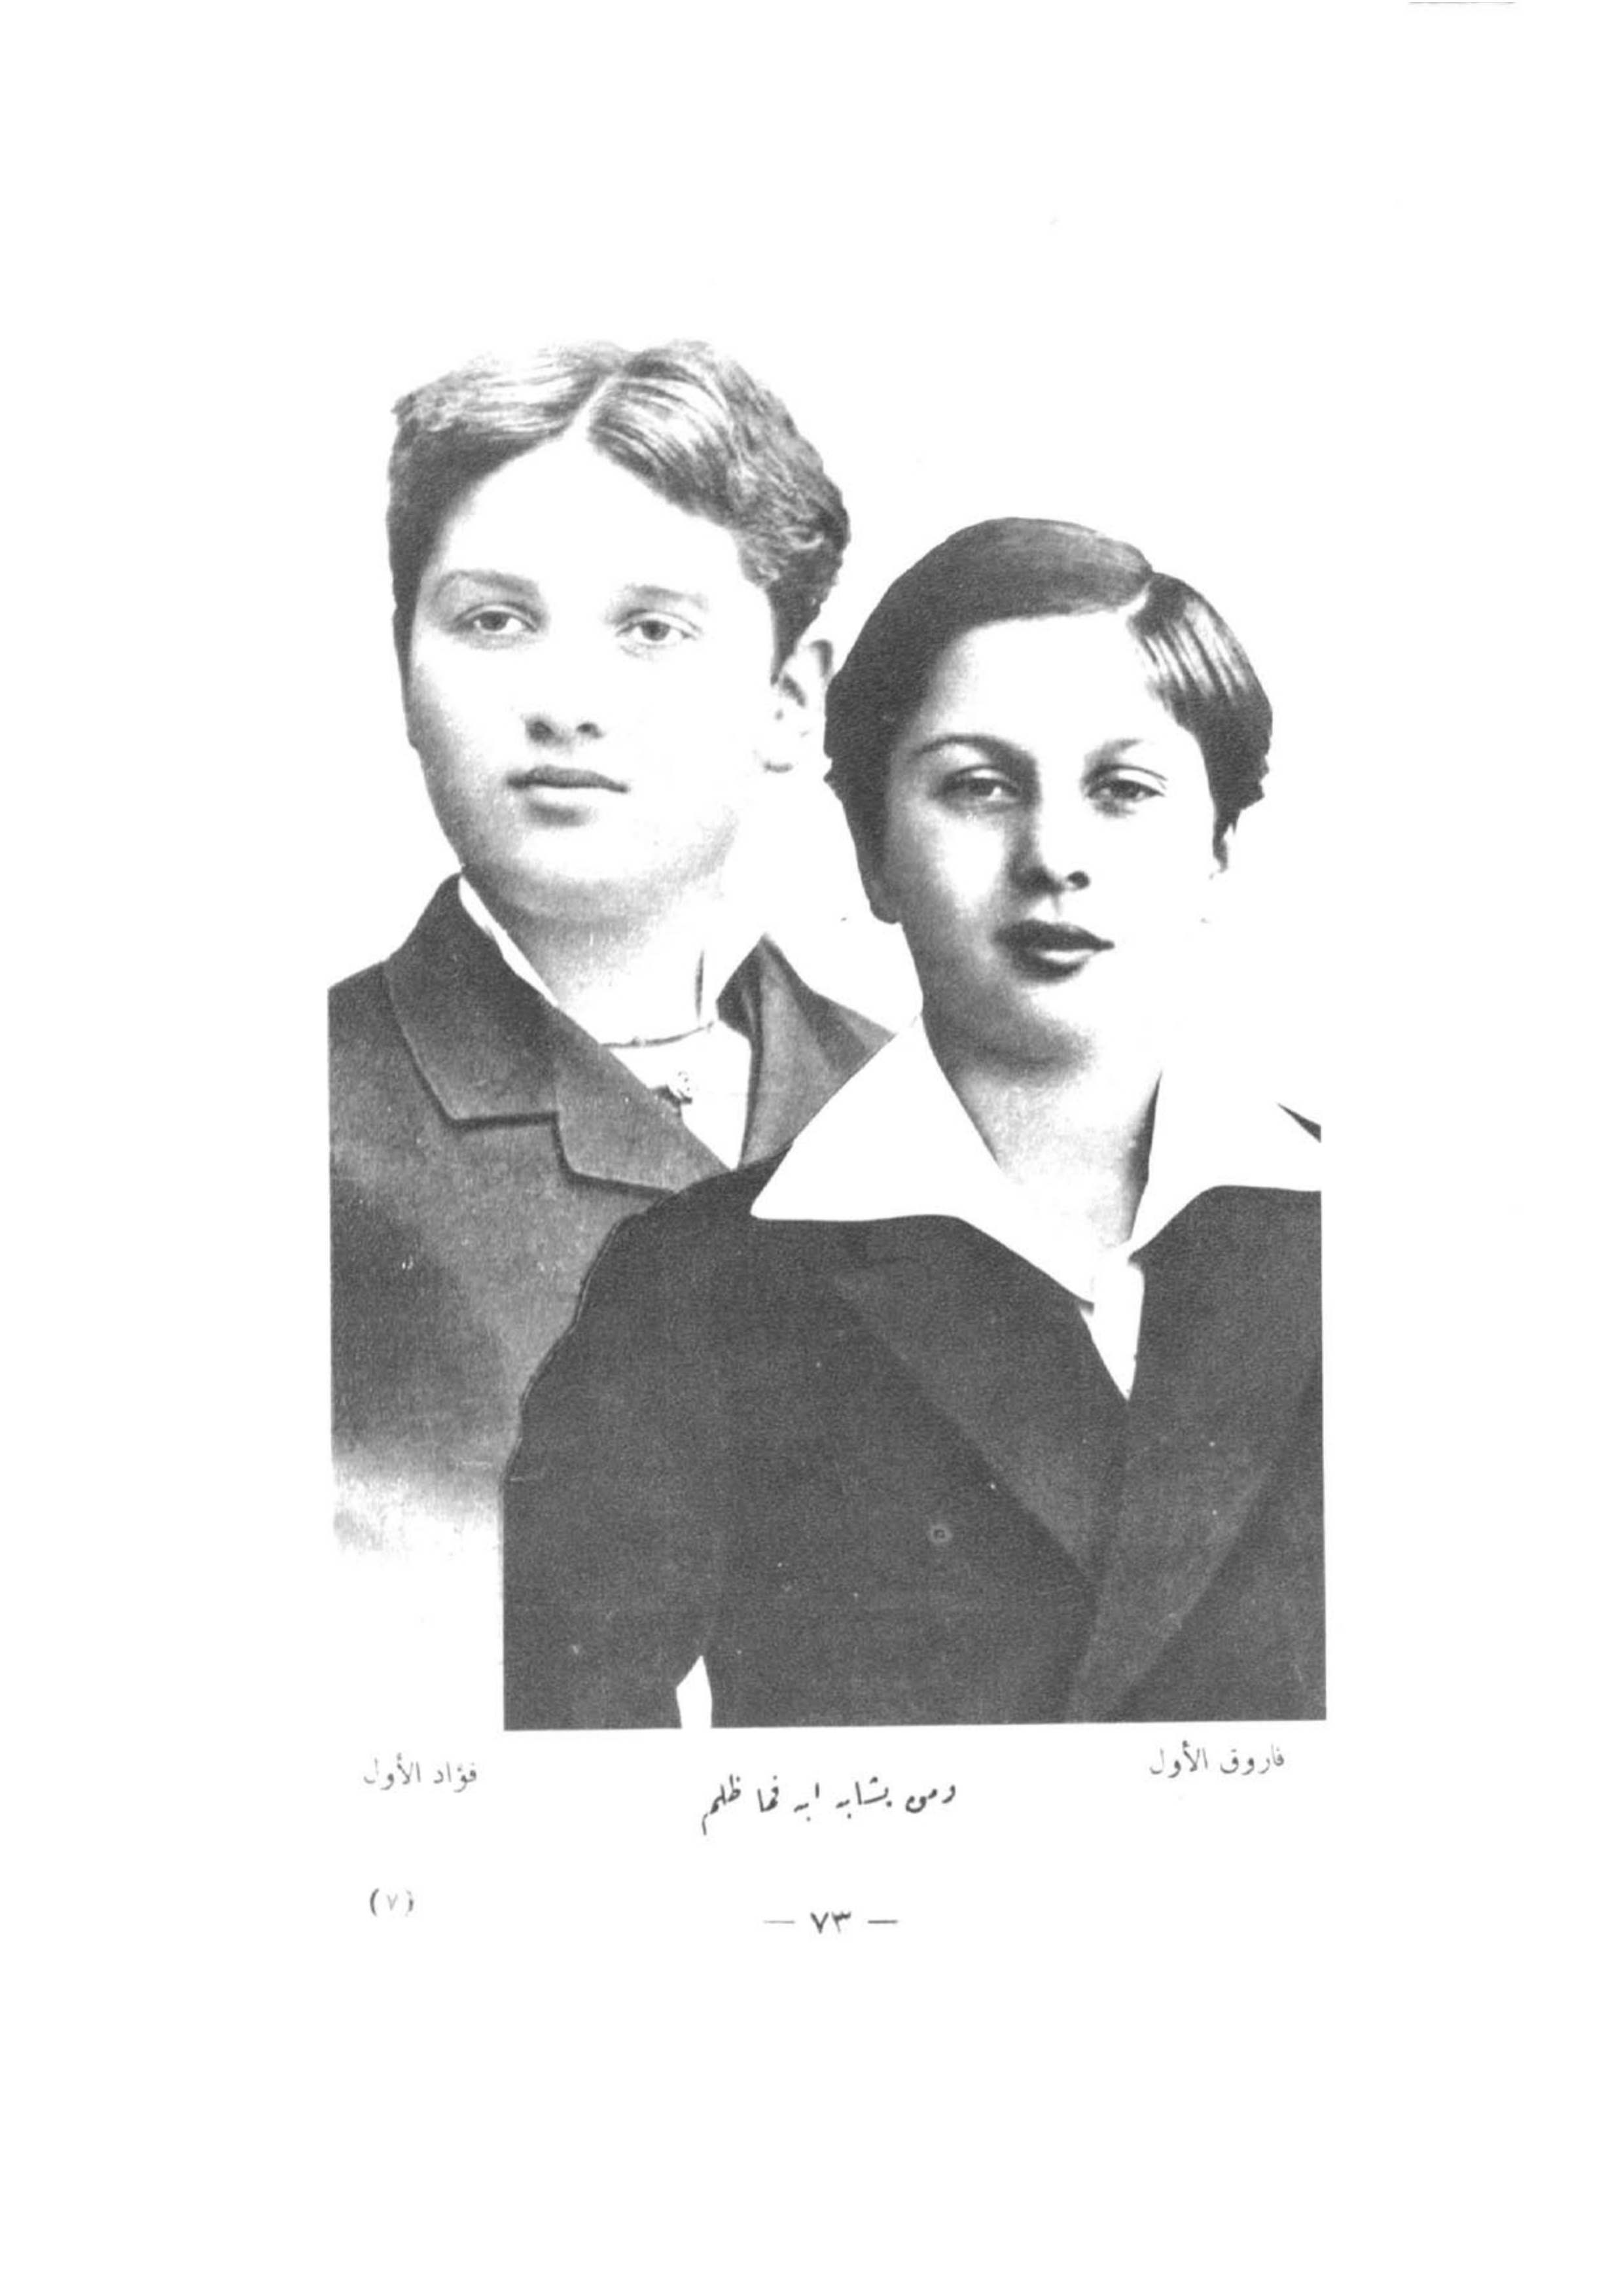 فاروق الأول
فؤاد الأول
ومن يشابه ابه فما ظلم
(٧)
— ٧٣ —